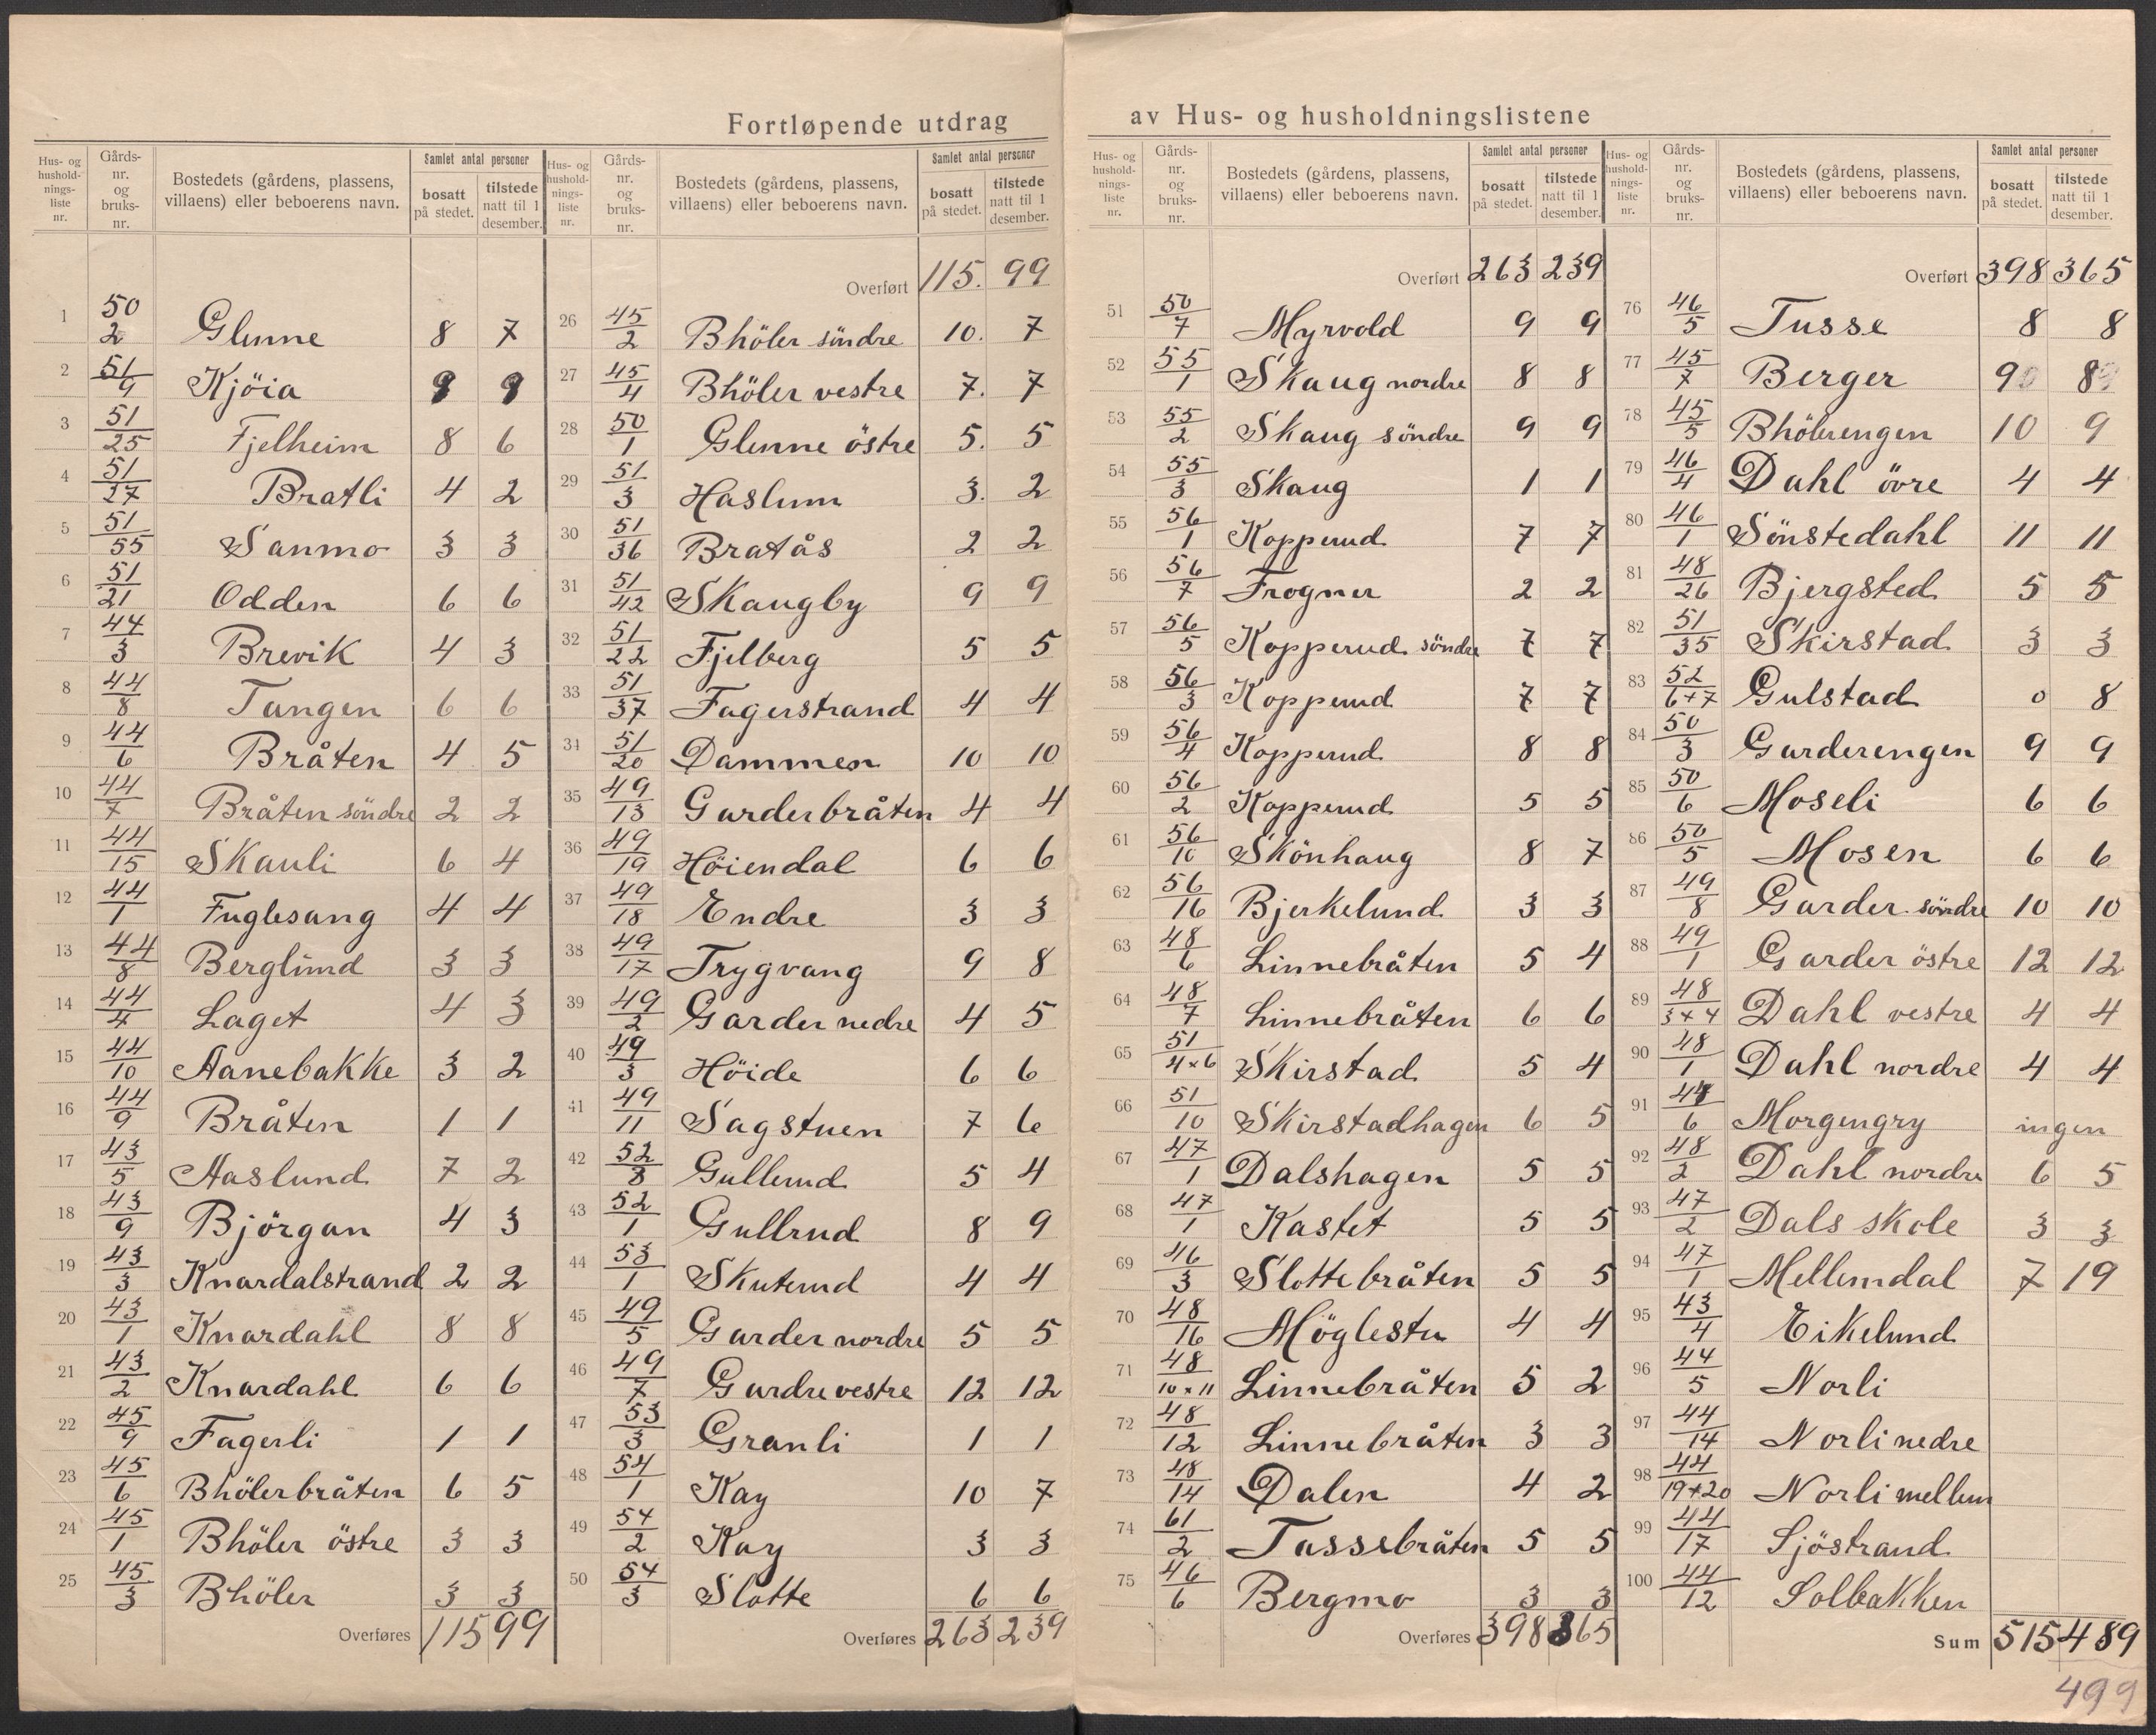 Fortløpende utdrag av Hus- og husholdningslistene
Hus- og hushold-nings-liste nr. Gårds-nr. og bruks-nr. Bostedets (gårdens, plassens, villaens) eller beboerens navn. Samlet antal personer bosatt på stedet. tilstede natt til 1 desember.
1 50/2 Glenne 8 7
2 51/9 Kjöia 9 9
3 51/25 Fjelheim 8 6
4 51/27 Bratli 4 2
5 51/55 Sanmo 3 3
6 51/21 Odden 6 6
7 44/3 Brevik 4 3
8 44/8 Tangen 6 6
9 44/6 Bråten 4 5
10 44/7 Bråten söndre 2 2
11 44/15 Skauli 6 4
12 44/1 Fuglesang 4 4
13 44/8 Berglund 3 3
14 44/4 Laget 4 3
15 44/10 Aanebakke 3 2
16 44/9 Bråten 1 1
17 43/5 Aaslund 7 2
18 43/9 Björgan 4 3
19 43/3 Knardalstrand 2 2
20 43/1 Knardahl 8 8
21 43/2 Knardahl 6 6
22 45/9 Fagerli 1 1
23 45/6 Bhölerbråten 6 5
24 45/1 Bhöler östre 3 3
25 45/3 Bhöler 3 3
Overføres 115 99
Hus- og hushold-nings-liste nr. Gårds-nr. og bruks-nr. Bostedets (gårdens, plassens, villaens) eller beboerens navn. Samlet antal personer bosatt på stedet. tilstede natt til 1 desember.
Overført 115. 99
26 45/2 Bhöler söndre 10. 7
27 45/4 Bhöler vestre 7. 7
28 50/1 Glenne östre 5. 5
29 51/3 Haslum 3. 2
30 51/36 Bratås 2 2
31 51/42 Skaugby 9 9
32 51/22 Fjelberg 5 5
33 51/37 Fagerstrand 4 4
34 51/20 Dammen 10 10
35 49/13 Garderbråten 4 4
36 49/19 Höiendal 6 6
37 49/18 Endre 3 3
38 49/17 Trygvang 9 8
39 49/2 Garder nedre 4 5
40 49/3 Höide 6 6
41 49/11 Sagstuen 7 6
42 52/8 Gullerud 5 4
43 52/1 Gullrud 8 9
44 53/1 Skuterud 4 4
45 49/5 Garder nordre 5 5
46 49/7 Gardre vestre 12 12
47 53/3 Granli 1 1
48 54/1 Kay 10 7
49 54/2 Kay 3 3
50 54/3 Slotte 6 6
Overføres 263 239
Hus- og hushold-nings-liste nr. Gårds-nr. og bruks-nr. Bostedets (gårdens, plassens, villaens) eller beboerens navn. Samlet antal personer bosatt på stedet. tilstede natt til 1 desember.
Overført 263 239
51 50/7 Myrvold 9 9
52 55/1 Skaug nordre 8 8
53 55/2 Skaug söndre 9 9
54 55/3 Skaug 1 1
55 56/1 Kopperud 7 7
56 56/7 Frogner 2 2
57 56/5 Kopperud söndre 7 7
58 56/3 Kopperud 7 7
59 56/4 Kopperud 8 8
60 56/2 Kopperud 5 5
61 56/10 Skönhaug 8 7
62 56/16 Bjerkelund 3 3
63 48/6 Linnebråten 5 4
64 48/7 Linnebråten 6 6
65 51/4×6 Skirstad 5 4
66 51/10 Skirstadhagen 6 5
67 47/1 Dalshagen 5 5
68 47/1 Kastet 5 5
69 46/3 Slottebråten 5 5
70 48/16 Möglestu 4 4
71 48/10×11 Linnebråten 5 2
72 48/12 Linnebråten 3 3
73 48/14 Dalen 4 2
74 61/2 Tassebråten 5 5
75 46/6 Bergmo 3 3
Overføres 398 365
Hus- og hushold-nings-liste nr. Gårds-nr. og bruks-nr. Bostedets (gårdens, plassens, villaens) eller beboerens navn. Samlet antal personer bosatt på stedet. tilstede natt til 1 desember.
Overført 398 365
76 46/5 Tusse 8 8
77 45/7 Berger 9 8
78 45/5 Bhölerengen 10 9
79 46/4 Dahl övre 4 4
80 46/1 Sönstedahl 11 11
81 48/26 Bjergsted 5 5
82 51/35 Skirstad 3 3
83 52/6+7 Gulstad 0 8
84 50/3 Garderengen 9 9
85 50/6 Moseli 6 6
86 50/5 Mosen 6 6
87 49/8 Garder söndre 10 10
88 49/1 Garder östre 12 12
89 48/3×4 Dahl vestre 4 4
90 48/1 Dahl nordre 4 4
91 6 Morgengry ingen
92 48/2 Dahl nordre 6 5
93 47/2 Dals skole 3 3
94 47/1 Mellemdal 7 19
95 43/4 Eikelund
96 44/5 Norli
97 44/14 Norli nedre
98 44/19+20 Norli mellem
99 44/17 Sjöstrand
100 44/12 Solbakken
Sum 515 489
499